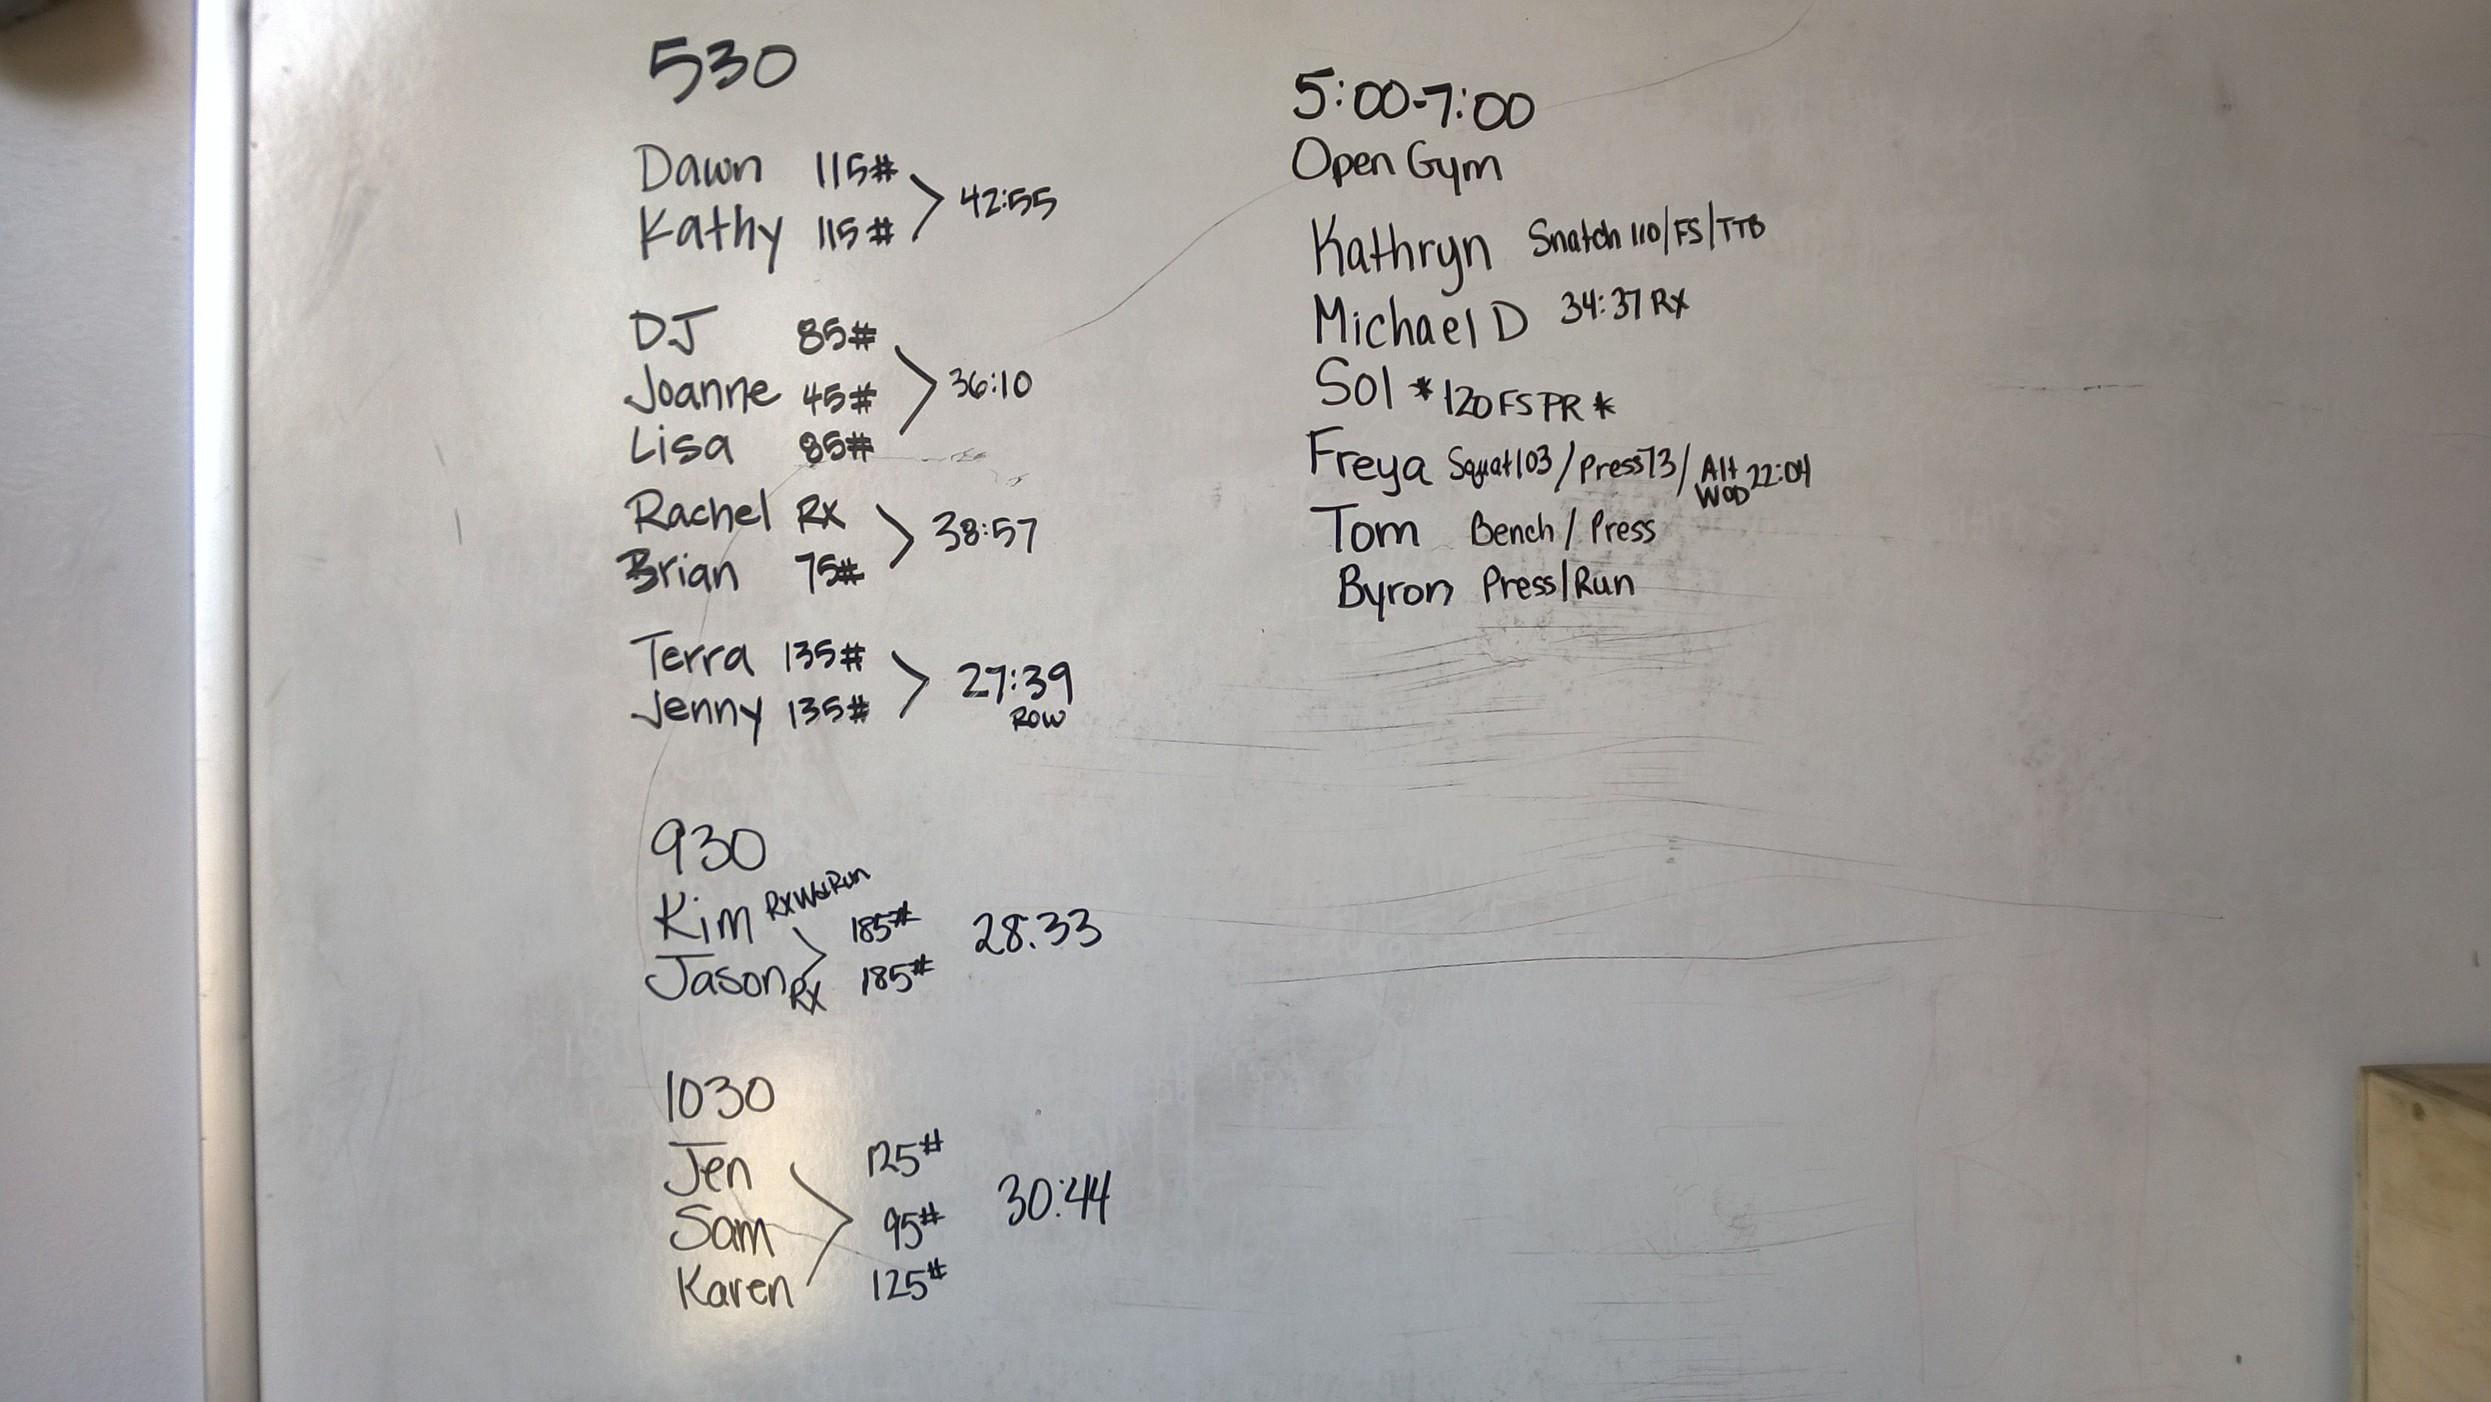 530
Dawn 115#
Kathy 115#
42:55
DJ 85#
Joanne 45#
Lisa 85#
36:10
Rachel RX
Brian 75#
38:57
Terra 135#
Jenny 135#
27:39
ROW
930
Kim RX Wod Run 185#
Jason RX 185#
28:33
1030
Jen 125#
Sam 95#
Karen 125#
30:44
5:00-7:00
Open Gym
Kathryn Snatch 110/FS/TTB
Michael D 34:37 RX
Sol *120 FS PR*
Freya Squat 103/Press 73/Alt WOD 22:04
Tom Bench/Press
Byron Press/Run